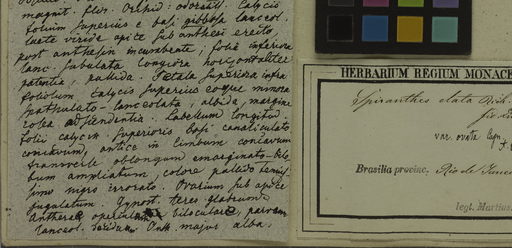 magnit. flor. Orchid. odorati. Calycis
folium superius e basi gibbosa lanceol.
laete viride apice sub anthesi erecto,
post anthesin incurvente; folia inferiora
lanc. subulata longiora horizontaliter
patentia, pallida. Petala superiora infra
foliolum calycis superius eoque minora
spathulato-lanceolata, albida, margine
adhaerentia. Labellum longitud.
folii calycin. superioris basi canaliculato
concavum, antice in limbum concavum
transverse oblongum emarginato-bilo
bum ampliatum, colore pallido
simo nigro errorato. Ovarium sub apice
jugulatum. Gynost. teres glabrum
Anthera operculum biloculare, parvum
lanceol. major alba.
HERBARIUM REGIUM MONACE
Spiranthes elata Rich.
var. ovata Cogn.
Brasilia provinc. Rio de Janei
legt. Martius.